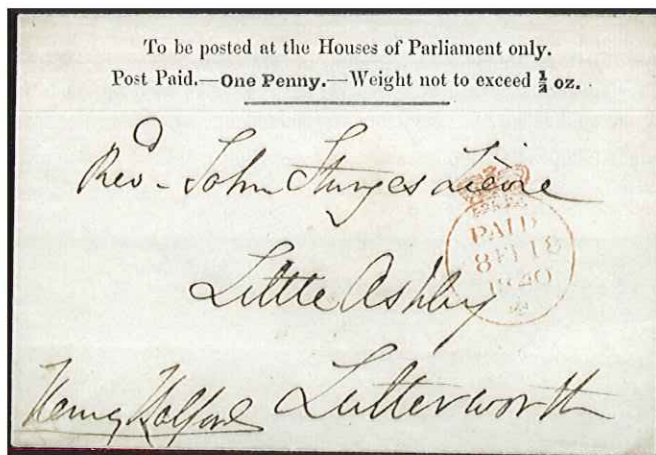 To be posted at the Houses of Parliament only.
Post Paid.—One Penny.—Weight not to exceed ½ oz.
Revd. John Sturges Lievre
PAID
8 FE 18
1840
Little Ashby
Henry Halford Lutterworth